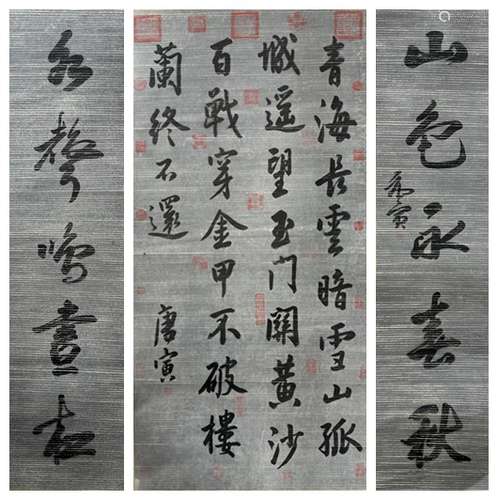 山色永春秋
唐寅
青海长雲暗雪山孤
城遥望玉门關黄沙
百戰穿金甲不破樓
蘭終不還
唐寅
水聲鳴晝夜